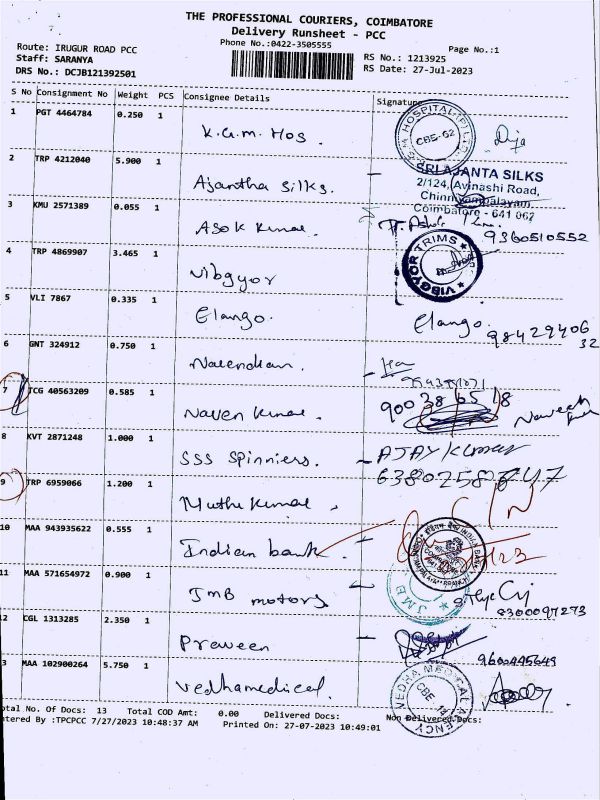 THE PROFESSIONAL COURIERS, COIMBATORE
Delivery Runsheet - PCC
Phone No.:0422-3505555
Page No.:1
Route: IRUGUR ROAD PCC
Staff: SARANYA
DRS No.: DCJB121392501
RS No.: 1213925
RS Date: 27-Jul-2023
S No Consignment No Weight PCS Consignee Details Signature
1 PGT 4464784 0.250 1 K.G.M. Hos. HOSPITAL CBE-62
2 TRP 4212040 5.900 1 Ajantha silks. SRI AJANTA SILKS
2/124, Avinashi Road,
Chinniyampalayam,
Coimbatore - 641 062
3 KMU 2571389 0.055 1 Asok Kumar. 9360510552
4 TRP 4869907 3.465 1 Vibgyor VIBGYOR TRIMS
5 VLI 7867 0.335 1 Elango. Elango. 98429406
32
6 GNT 324912 0.750 1 Narendran.
7 TCG 40563209 0.585 1 Naven Kumar. 9003865518 Naveen
8 KVT 2871248 1.000 1 SSS Spinniers. AJAY Kumar
9 TRP 6959066 1.200 1 Muthu Kumar.
10 MAA 943935622 0.555 1 Indian bank INDIAN BANK
11 MAA 571654972 0.900 1 JMB motors J.M.B 8300097273
12 CGL 1313285 2.350 1 Praveen 9600445649
13 MAA 102900264 5.750 1 Vedhamedical. VEDHA MEDICAL AGENCY CBE-14
Total No. Of Docs: 13 Total COD Amt: 0.00 Delivered Docs: Non Delivered Docs:
Entered By :TPCPCC 7/27/2023 10:48:37 AM Printed On: 27-07-2023 10:49:01